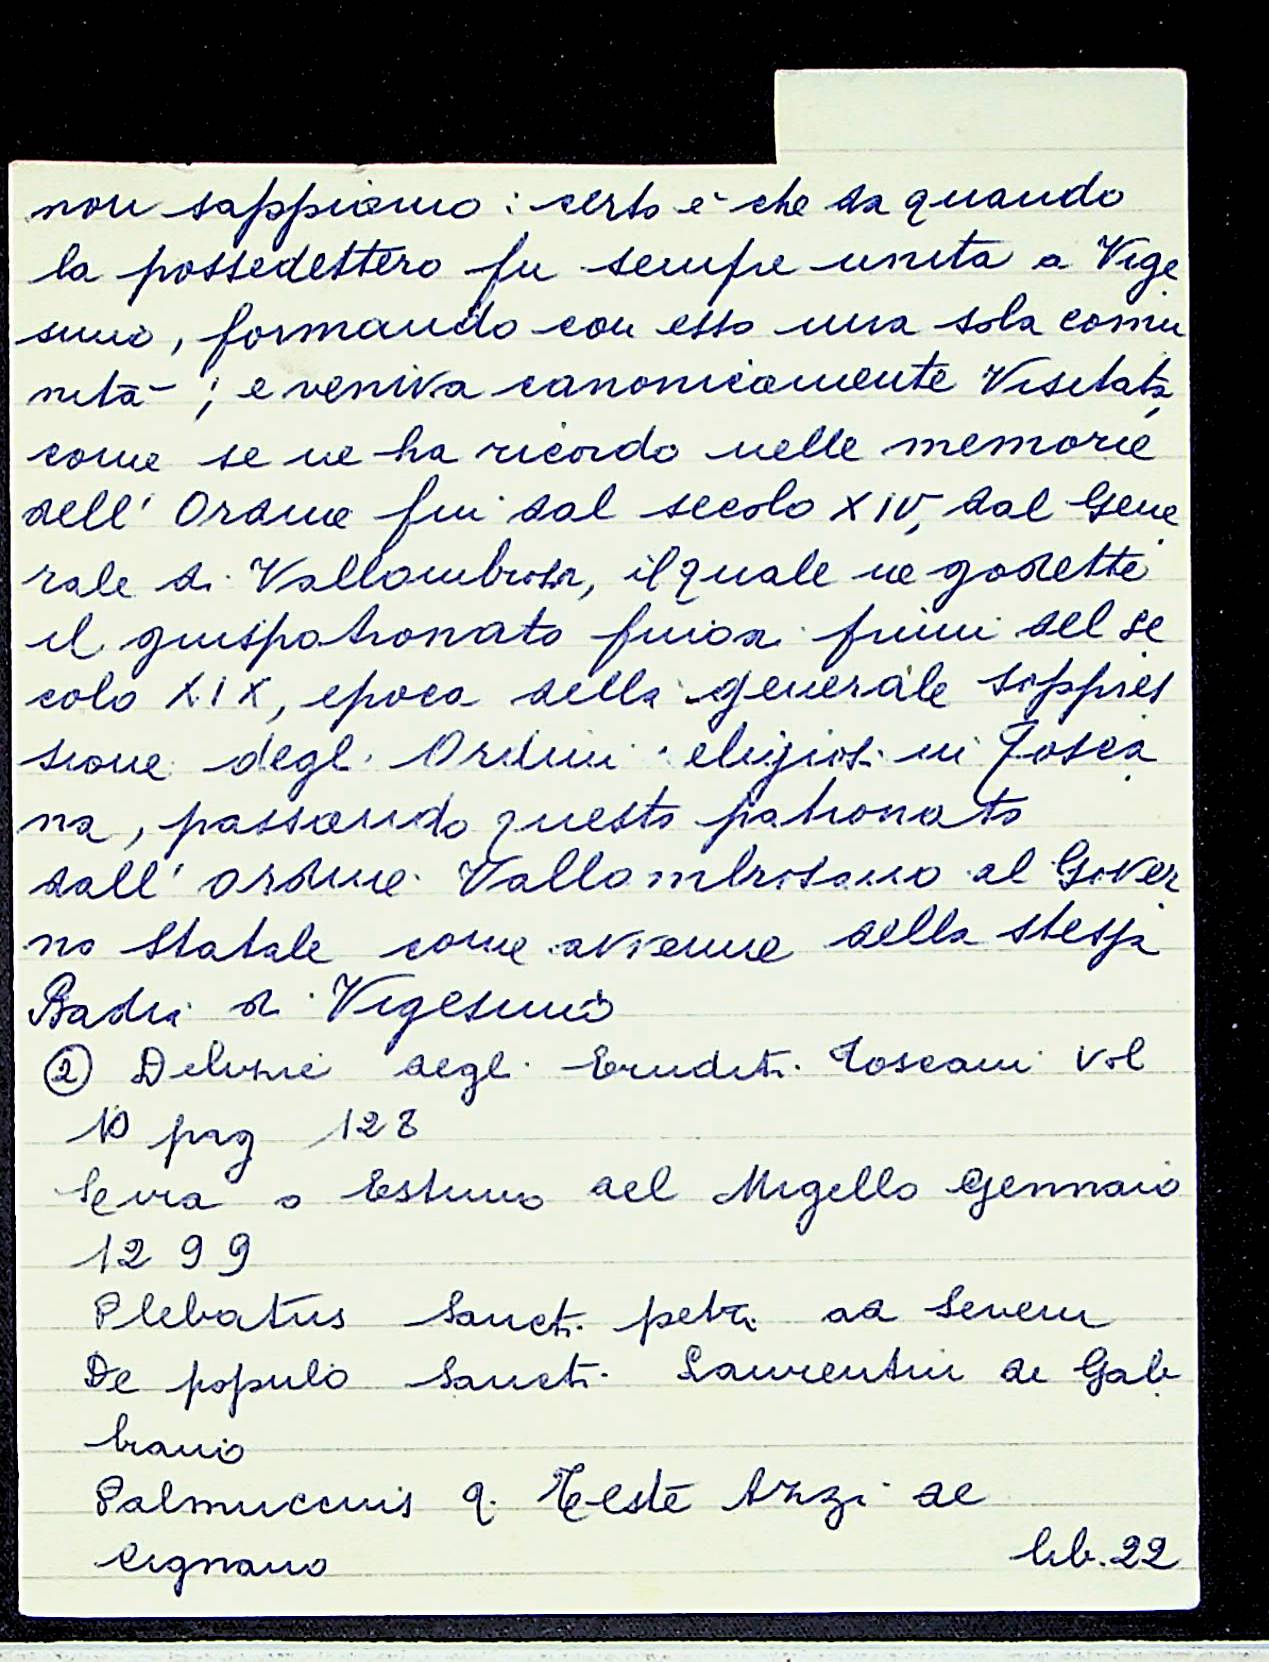 non sappiamo : certo è che da quando
la possedettero fu sempre unita a Vige
simo, formando con esso una sola comu
nità ; e veniva canonicamente Visitata,
come se ne ha ricordo nelle memorie
dell' Ordine fin dal secolo XIV, dal Gene
rale di Vallombrosa, il quale ne godette
il giuspatronato fino ai primi del se
colo XIX, epoca della generale soppres
sione degli Ordini religiosi in Tosca
na, passando questo patronato
dall' ordine Vallombrosano al Gover
no Statale come avvenne della stessa
Badia di Vigesimo
② Delizie degli Eruditi Toscani Vol
10 pag 128
Leva o Estimo del Mugello Gennaio
1299
Plebatus Sancti petri ad Severi
De populo Sancti Laurentini de Gab
biano
Palmuccius q. Teste Azzi de
Cignano lib. 22